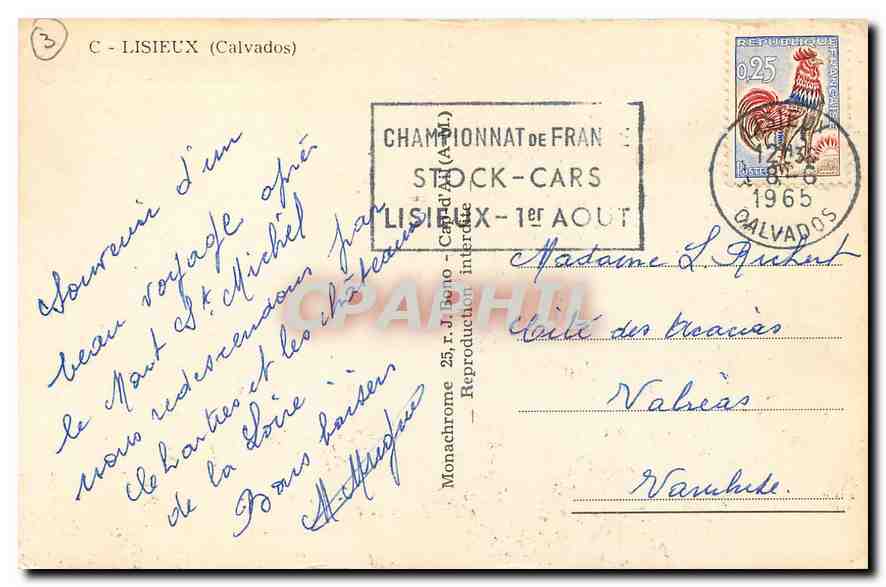 3
C - LISIEUX (Calvados)
REPUBLIQUE FRANÇAISE
0,25
CHAMPIONNAT DE FRAN E
STOCK-CARS
LISIEUX - 1er AOUT
12 H 30
8-6
1965
CALVADOS
Souvenir d'un
beau voyage après
le Mont St. Michel
nous redescendons par
Chartres et les châteaux
de la Loire
Bons baisers
Monachrome 25, r. J. Bono - Cap-d'Ail (A.-M.)
— Reproduction interdite —
Madame L. Richert
Cité des Acacias
Valréas
Vaucluse.
CPARHTI